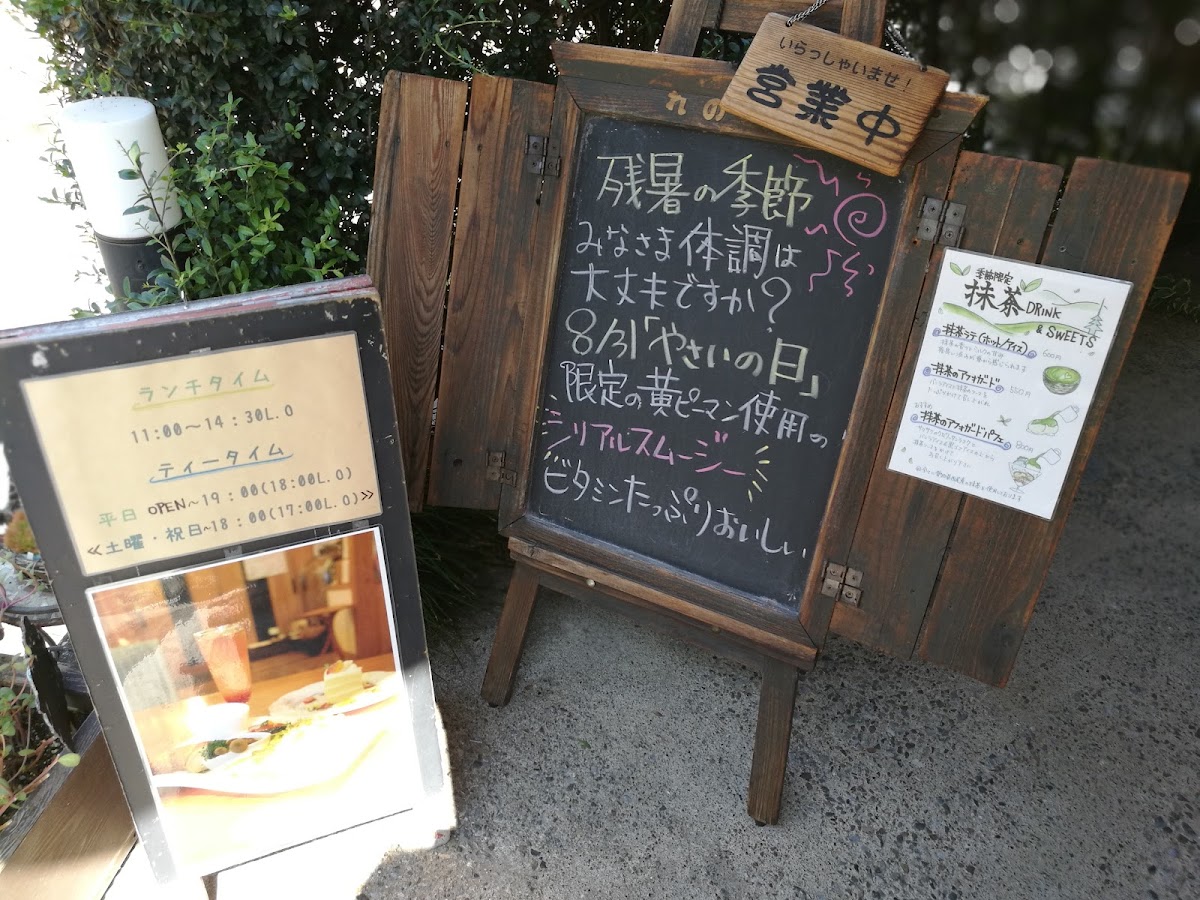 いらっしゃいませ!
営業中
九の
残暑の季節
みなさま体調は
大丈夫ですか?
8/31「やさいの日」
限定の黄ピーマン使用の
シリアルスムージー
ビタミンたっぷりおいしい
ランチタイム
11:00〜14:30L.O
ティータイム
平日 OPEN~19:00(18:00L.O)
≪土曜・祝日~18:00(17:00L.O)≫
季節限定
抹茶 DRINK
& SWEETS
抹茶ラテ(ホット/アイス) 600円
抹茶のアフォガード
抹茶のアフォガードパフェ 800円